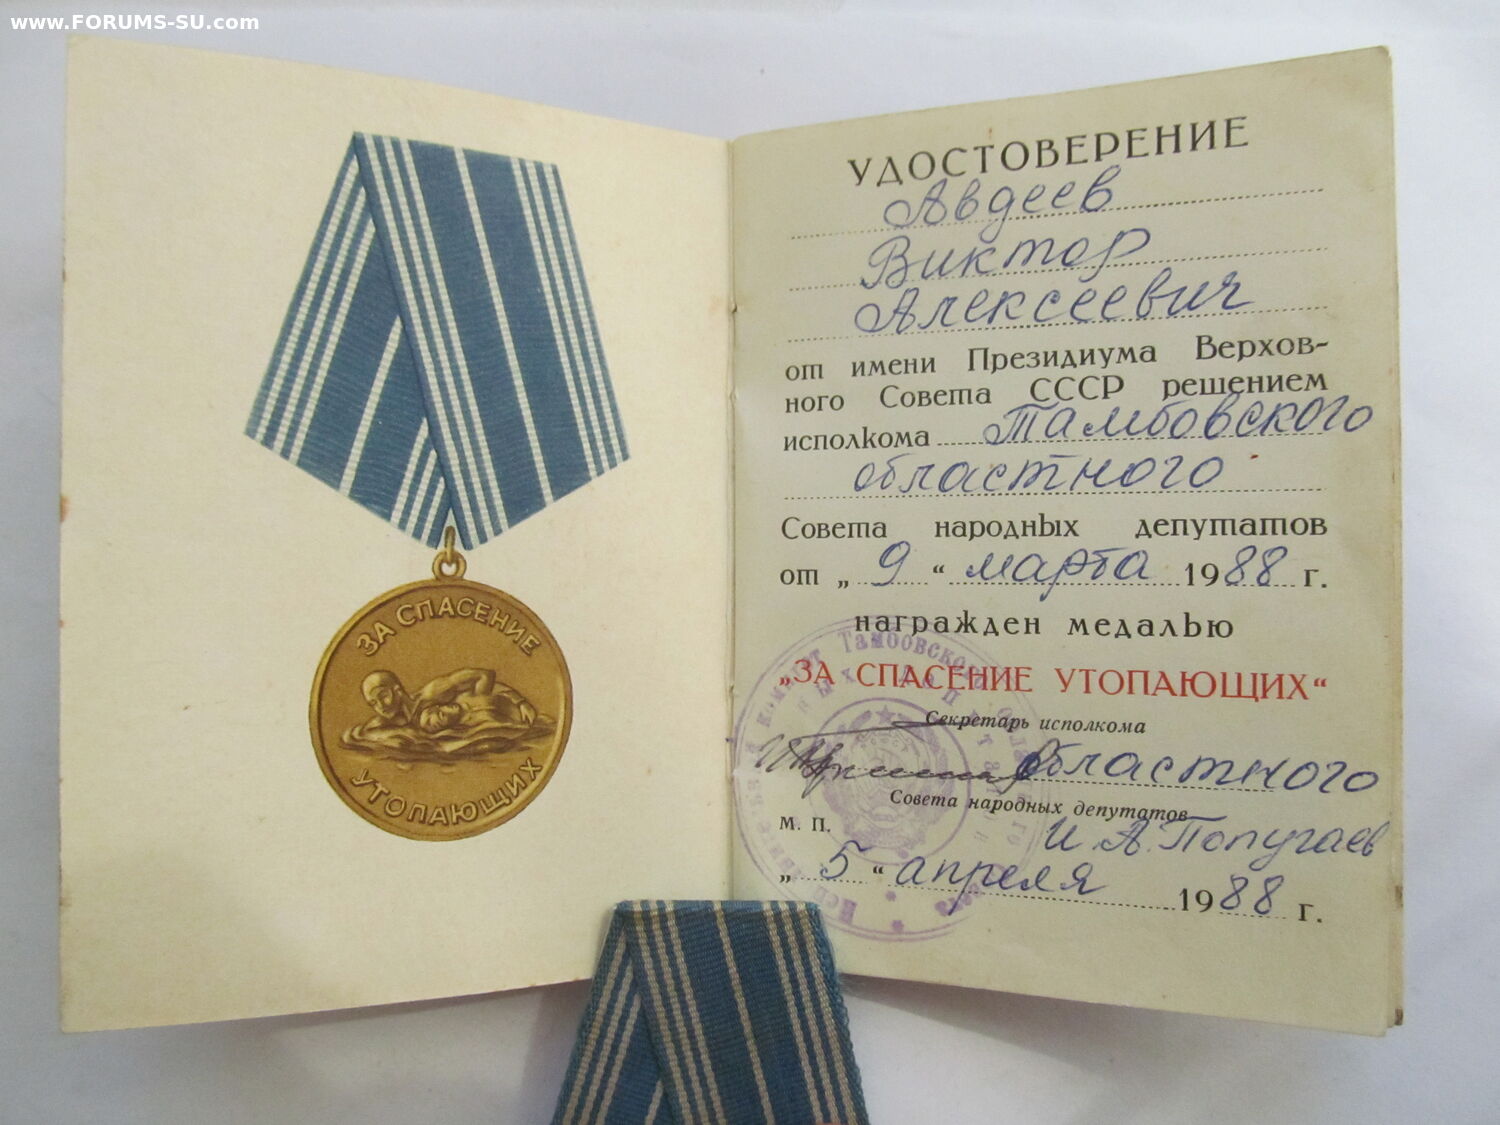 www.FORUMS-SU.com
ЗА СПАСЕНИЕ
УТОПАЮЩИХ
УДОСТОВЕРЕНИЕ
Авдеев
Виктор
Алексеевич
от имени Президиума Верхов-
ного Совета СССР решением
исполкома Тамбовского
областного
Совета народных депутатов
от „ 9 “ марта 1988 г.
награжден медалью
„ЗА СПАСЕНИЕ УТОПАЮЩИХ“
Секретарь исполкома
областного
Совета народных депутатов
М. П.
И. А. Попугаев
„ 5 “ апреля 1988 г.